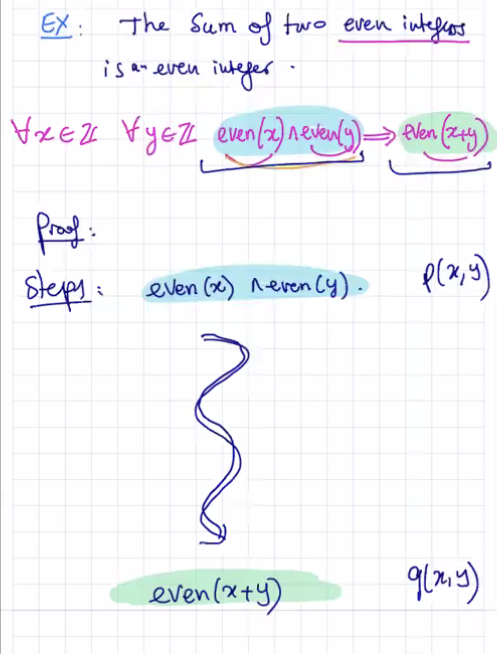 EX: The Sum of two even integers
is an even integer.
∀x∈ℤ ∀y∈ℤ even(x)∧even(y) ⟹ even(x+y)
Proof:
Steps: even(x) ∧even(y). p(x,y)
even(x+y) q(x,y)